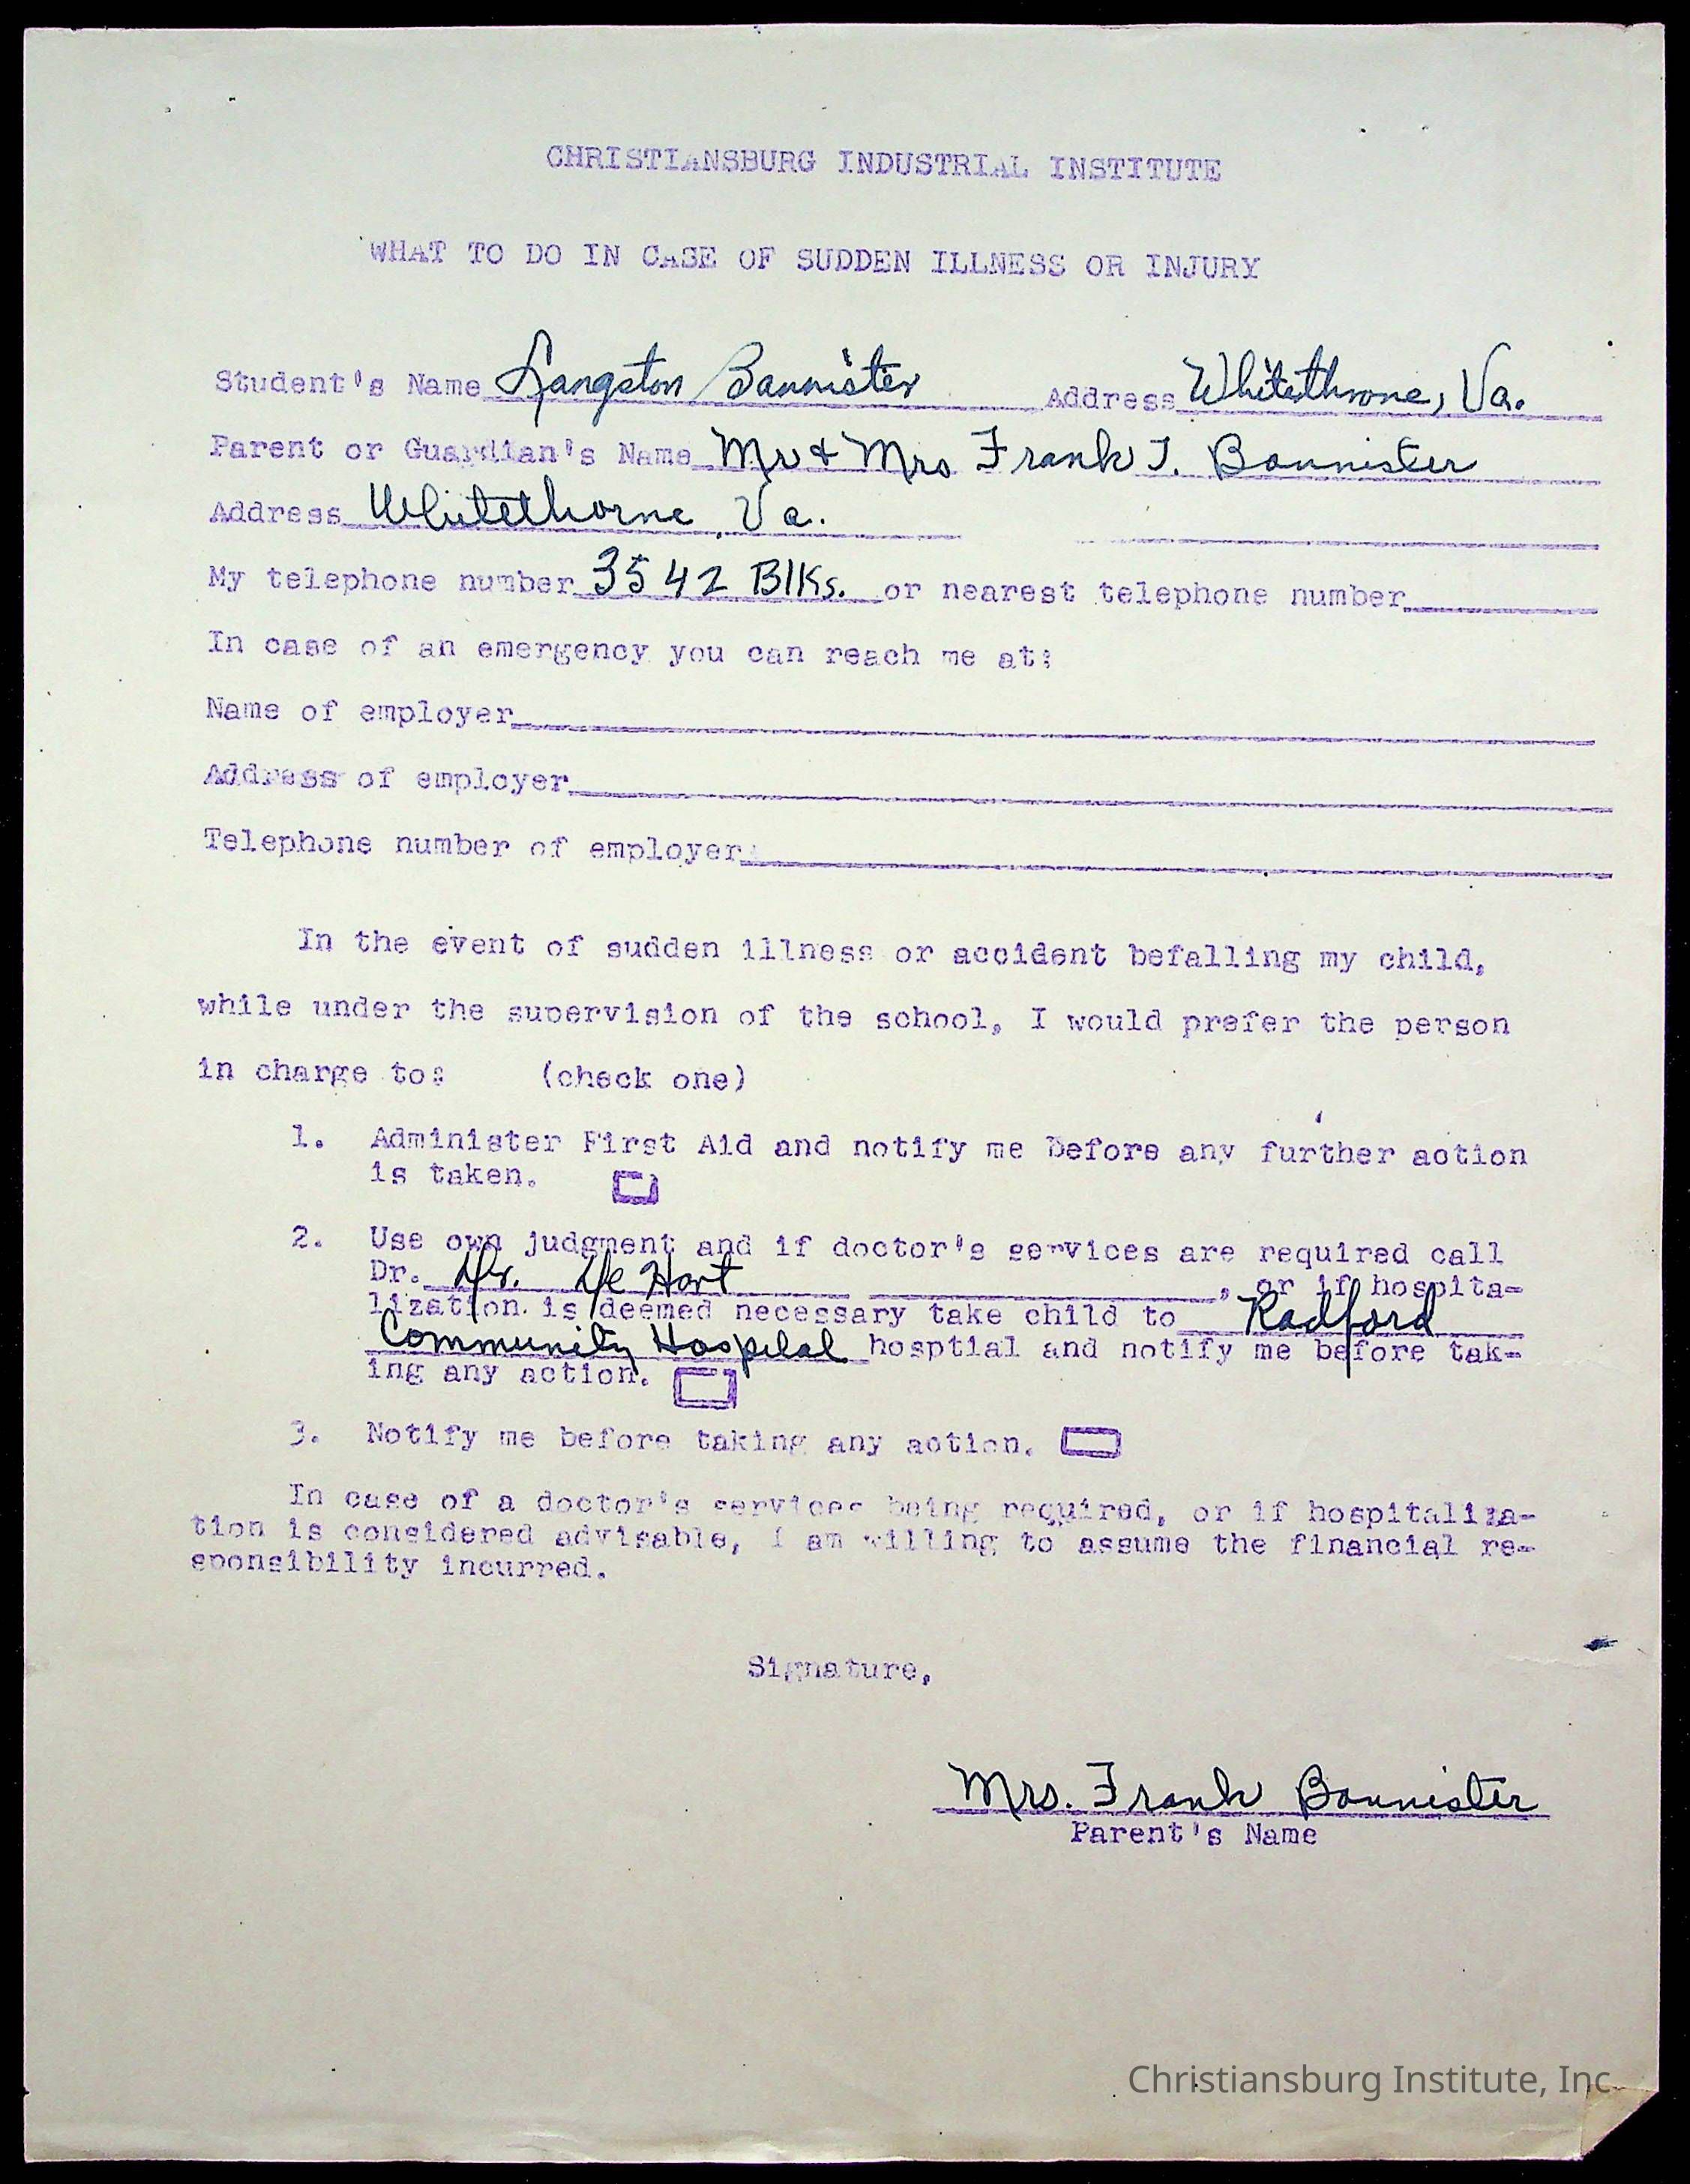 CHRISTIANSBURG INDUSTRIAL INSTITUTE
WHAT TO DO IN CASE OF SUDDEN ILLNESS OR INJURY
Student's Name Langston Bannister Address Whitethrone, Va.
Parent or Guardian's Name Mr & Mrs Frank T. Bannister
Address Whitethorne, Va.
My telephone number 3542 Blks. or nearest telephone number
In case of an emergency you can reach me at:
Name of employer
Address of employer
Telephone number of employer
In the event of sudden illness or accident befalling my child,
while under the supervision of the school, I would prefer the person
in charge to: (check one)
1. Administer First Aid and notify me before any further action
is taken.
2. Use own judgment and if doctor's services are required call
Dr. Dr. De Hart , or if hospita-
lization is deemed necessary take child to Radford
Community Hospital hosptial and notify me before tak-
ing any action.
3. Notify me before taking any action.
In case of a doctor's services being required, or if hospitaliza-
tion is considered advisable, I am willing to assume the financial re-
sponsibility incurred.
Signature,
Mrs. Frank Bannister
Parent's Name
Christiansburg Institute, Inc.